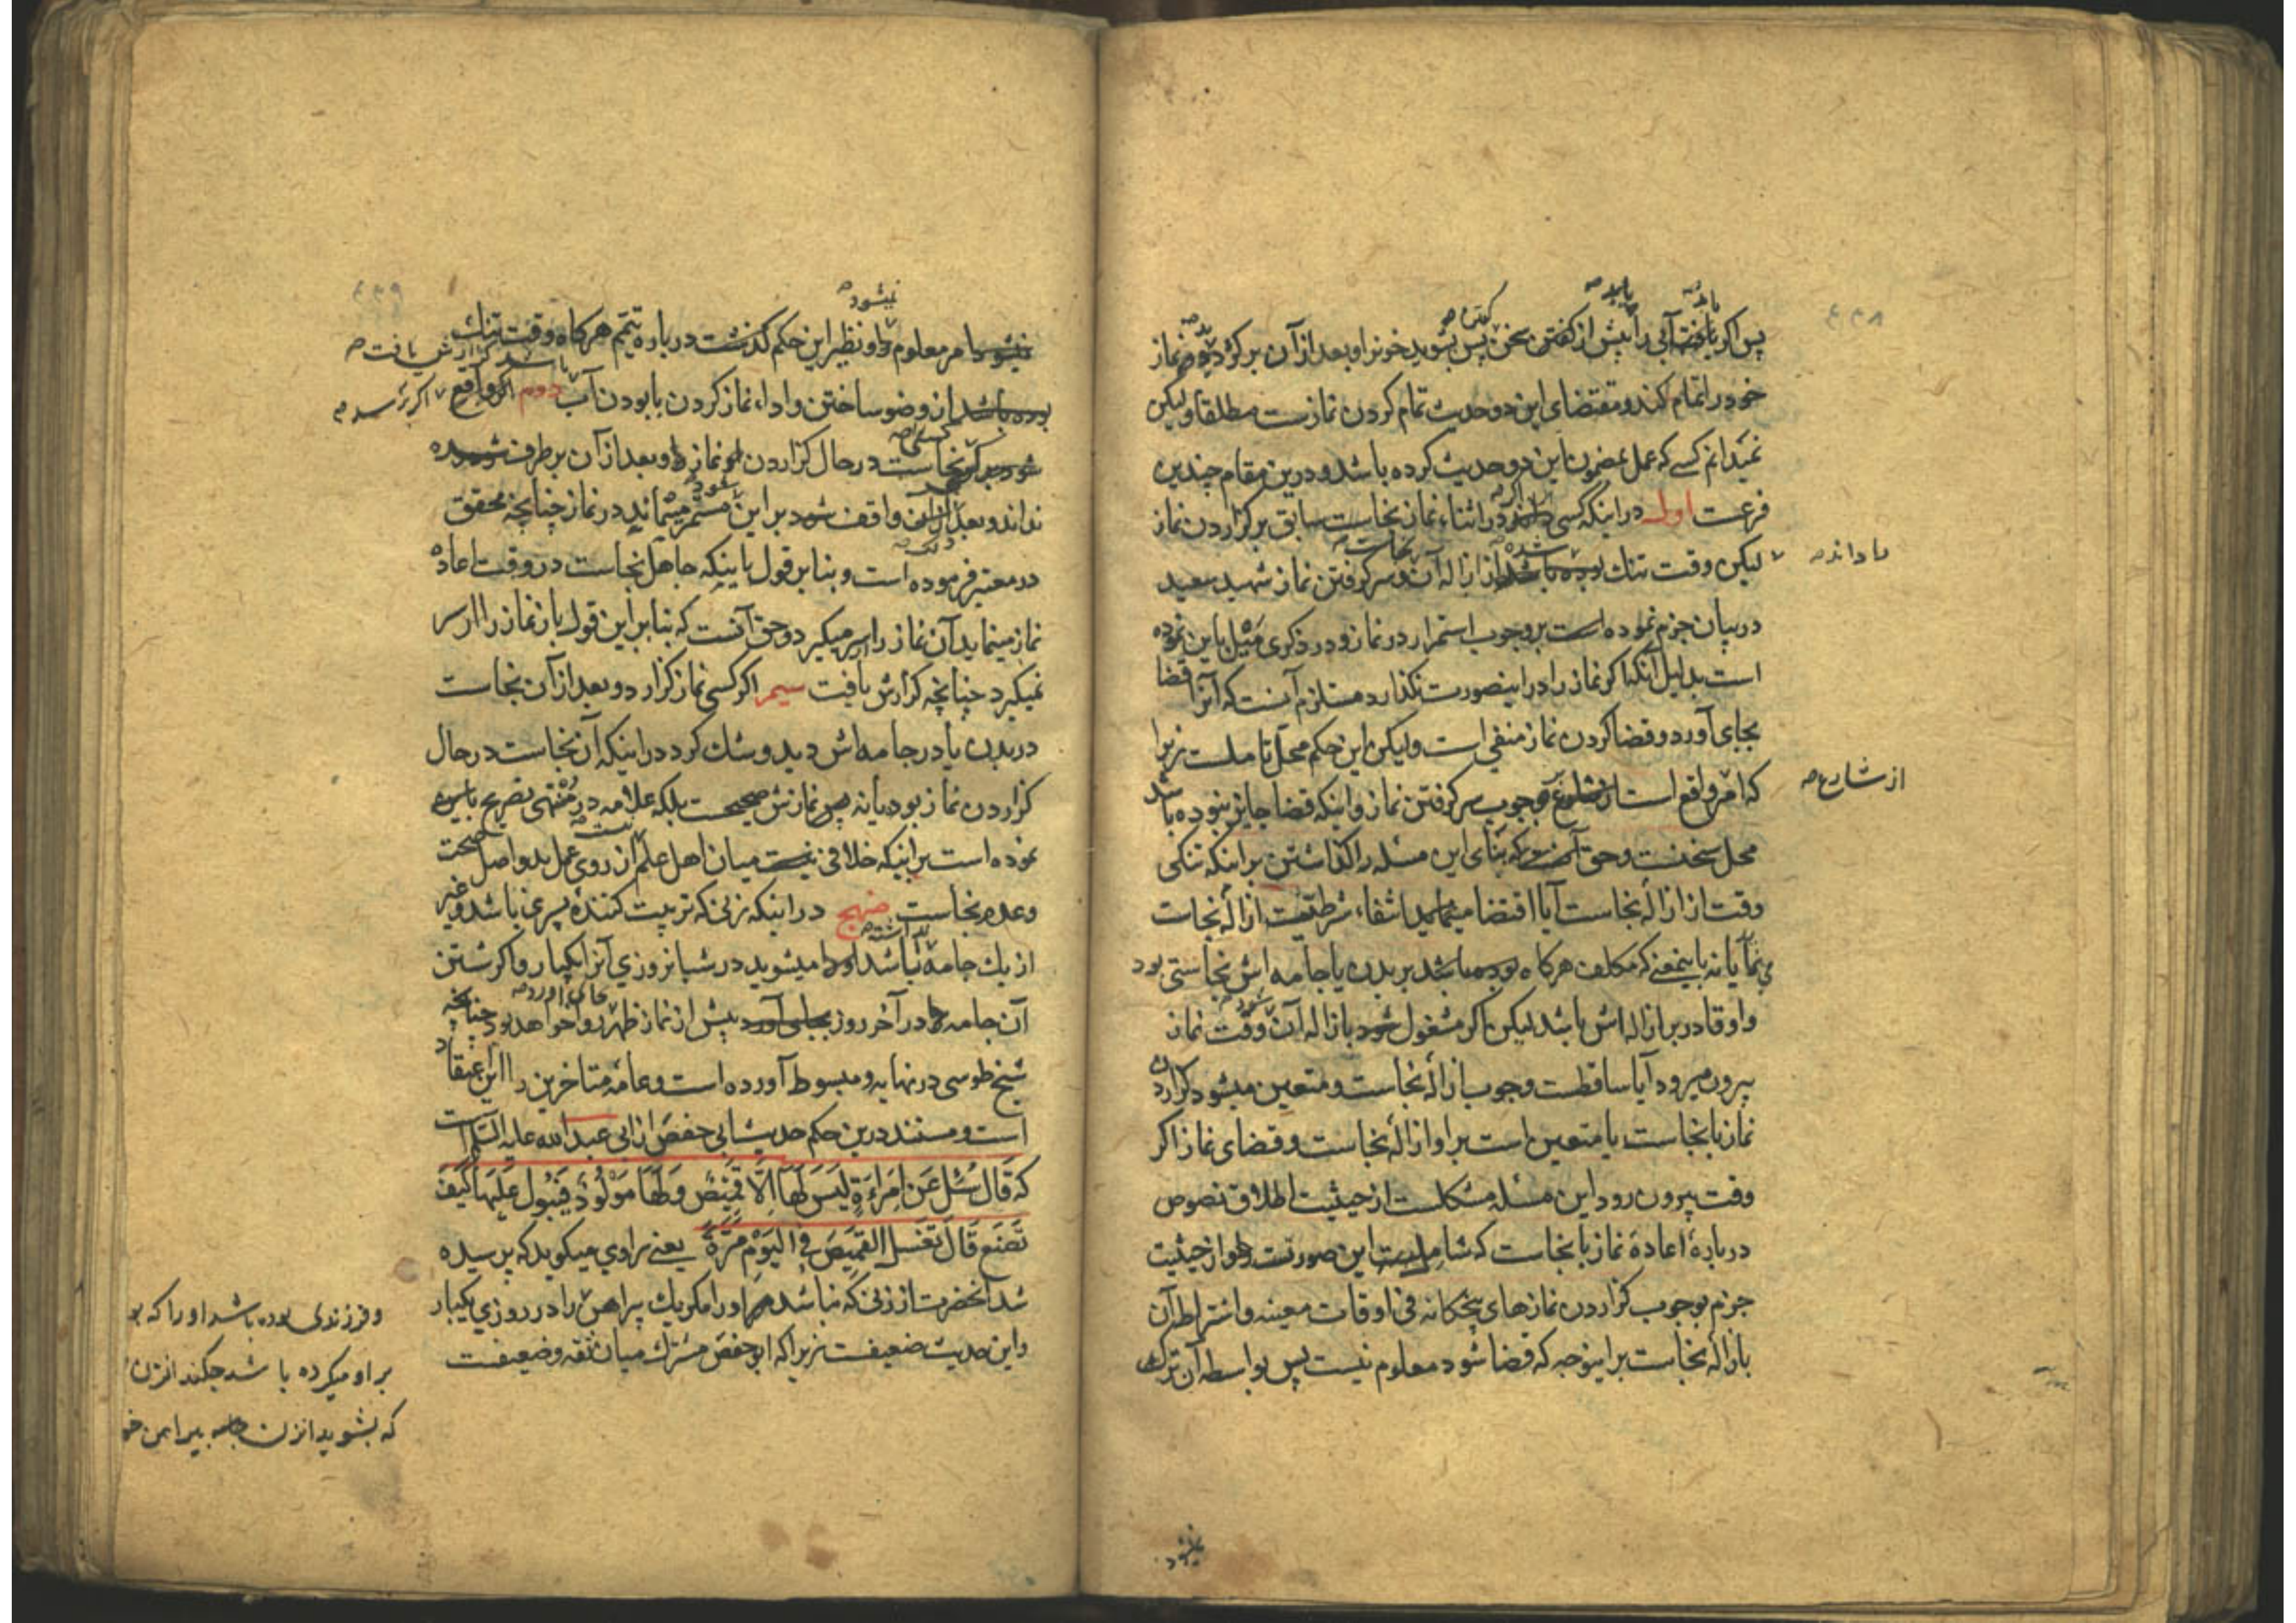 ۴۳۸
پس اگر یافت آبی را پیش از گفتن سخن پس بشوید خونرا و بعد از آن برگردد نماز
خود را تمام کند و مقتضای این دو حدیث تمام کردن نمازست مطلقا ولیکن
نمیدانم کسے که عمل بمضمون این دو حدیث کرده باشد و درین مقام چندین
فرعست اول در اینکه کسی در اثناء نماز نجاست سابق بر گزاردن نماز
لیکن وقت تنک بوده باشد از ازاله آن و سر گرفتن نماز شهید سعید
نا داند صح
در بیان جزم نموده است بر وجوب استمرار در نماز و در ذکری میل باین نموده
است بدلیل آنکه اگر نماز را در اینصورت نگذارد مستلزم آنست که آنرا قضا
بجای آورد و قضا کردن نماز منفی است ولیکن این حکم محل تاملست زیرا
که امر واقع است وجوب سر گرفتن نماز و اینکه قضا جایز نبوده باشد
از شارع صح
محل سخنست و حق آنست که بنای این مسئله را گذاشتن بر اینکه تنگی
وقت از ازالهٔ نجاست آیا اقتضا مینماید انتفاء شرطیت ازالهٔ نجاست
یا نه باینمعنے که مکلف هرگاه بوده باشد بر بدن یا جامه اش نجاستی بود
و او قادر بر ازاله اش باشد لیکن اگر مشغول شود بازاله آن وقت نماز
بیرون میرود آیا ساقطست وجوب ازالهٔ نجاست و متعین میشود گزاردن
نماز با نجاست یا متعین است بر او ازالهٔ نجاست و قضای نماز اگر
وقت بیرون رود این مسئله مشکلست از حیثیت اطلاق نصوص
دربارهٔ اعادهٔ نماز با نجاست که شاملست این صورتست و از حیثیت
جزم بوجوب گزاردن نمازهای پنجگانه فی اوقات معینه و اشتراط آن
بازالهٔ نجاست بر اینوجه که قضا شود معلوم نیست پس بواسطه آن ترک
۴۳۹
نمیشود صح
امر معلوم و نظیر این حکم گذشت درباره تیمم هرگاه وقت تنک
باشد گزارش یافت صح
بوده باشد از وضو ساختن و اداء نماز کردن با بودن آب دوم اگر واقع
نجاست در حال گزاردن نماز و بعد از آن برطرف شود
نداند و بعد از آن واقف شود بر این مستمر میماند در نماز چنانچه محقق
در معتبر فرموده است و بنا بر قول باینکه جاهل نجاست در وقت اعاده
نماز مینماید آن نماز را سر میگیرد و حق آنست که بنا بر این قول باز نماز را از سر
نمیگیرد چنانچه گزارش یافت سیم اگر کسی نماز گزارد و بعد از آن نجاست
در بدن یا در جامه اش دید و شک کرد در اینکه آن نجاست در حال
گزاردن نماز بود یا نه پس نمازش صحیحست بلکه علامه در منتهی تصریح باین
نموده است بر اینکه خلافی نیست میان اهل علم از روی عمل بدو اصل صحت
و عدم نجاست منهج در اینکه زنی که تربیت کنندهٔ پسری باشد و غیر
از یک جامه نداشته باشد میشوید در شبانروزی آنرا یکبار و اگر شستن
آن جامه در آخر روز بجای آورد پیش از نماز ظهر روا خواهد بود چنانچه
شیخ طوسی در نهایه و مبسوط آورده است و عامه متاخرین را این اعتقاد
است و مستند درین حکم حدیث ابی حفص از ابی عبد الله علیه السلم است
که قَالَ سُئِلَ عَن امرَأةٍ لَیسَ لَهَا اِلَّا قَمِیصٌ وَلَهَا مَولُودٌ فَیَبُولُ عَلَیهَا کَیفَ
تَصنَع قَالَ تَغسِل القَمِیصَ فِی الیَومِ مَرَّةً یعنے راوی میگوید که پرسیده
شد آنحضرت از زنی که نباشد او را مگر یک پیراهن را در روزی یکبار
و این حدیث ضعیفست زیرا که ابو حفص مشترک میان ثقه و ضعیفست
و فرزندی بوده باشد او را که بو
بر او میکرده باشد چکند انزن
که بشوید انزن پیراهن خو